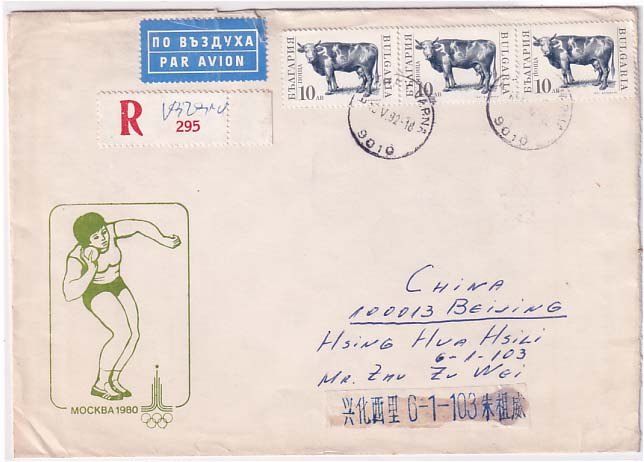 ПО ВЪЗДУХА
PAR AVION
R
295
БЪЛГАРИЯ
ПОЩА
10 ЛВ
BULGARIA
БЪЛГАРИЯ
ПОЩА
10 ЛВ
BULGARIA
БЪЛГАРИЯ
ПОЩА
10 ЛВ
BULGARIA
VARNA
V.92-18
9010
9010
CHINA
100013 BEIJING
HSING HUA HSILI
6-1-103
MR. ZHU ZU WEI
兴化西里 6-1-103 朱祖威
МОСКВА 1980